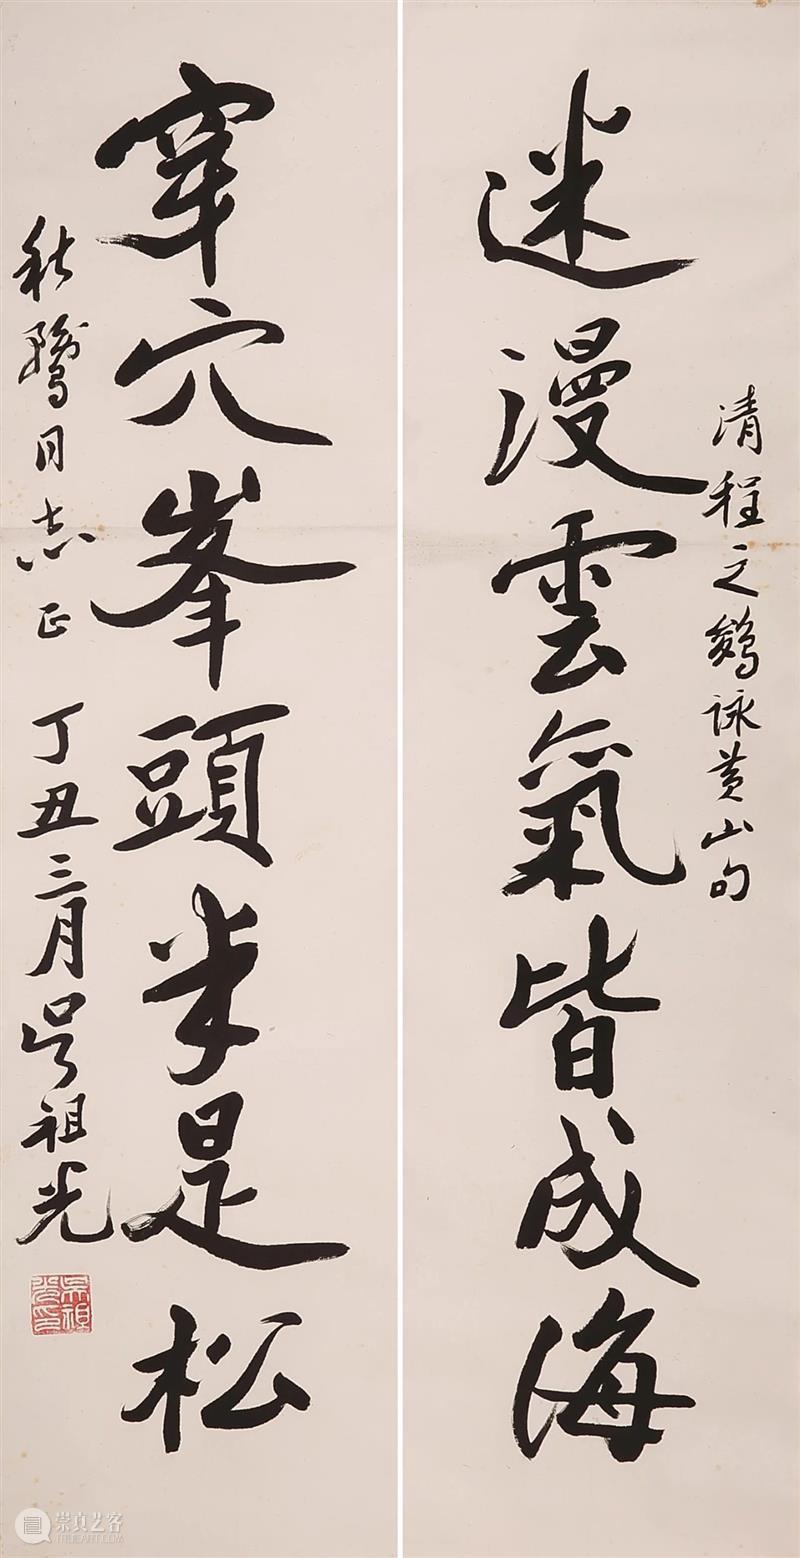 清程之鵕詠黄山句
迷漫雲氣皆成海
穿穴峯頭半是松
秋同志正 丁丑三月吳祖光
吳祖光印
崇真艺客
TRUEART.COM